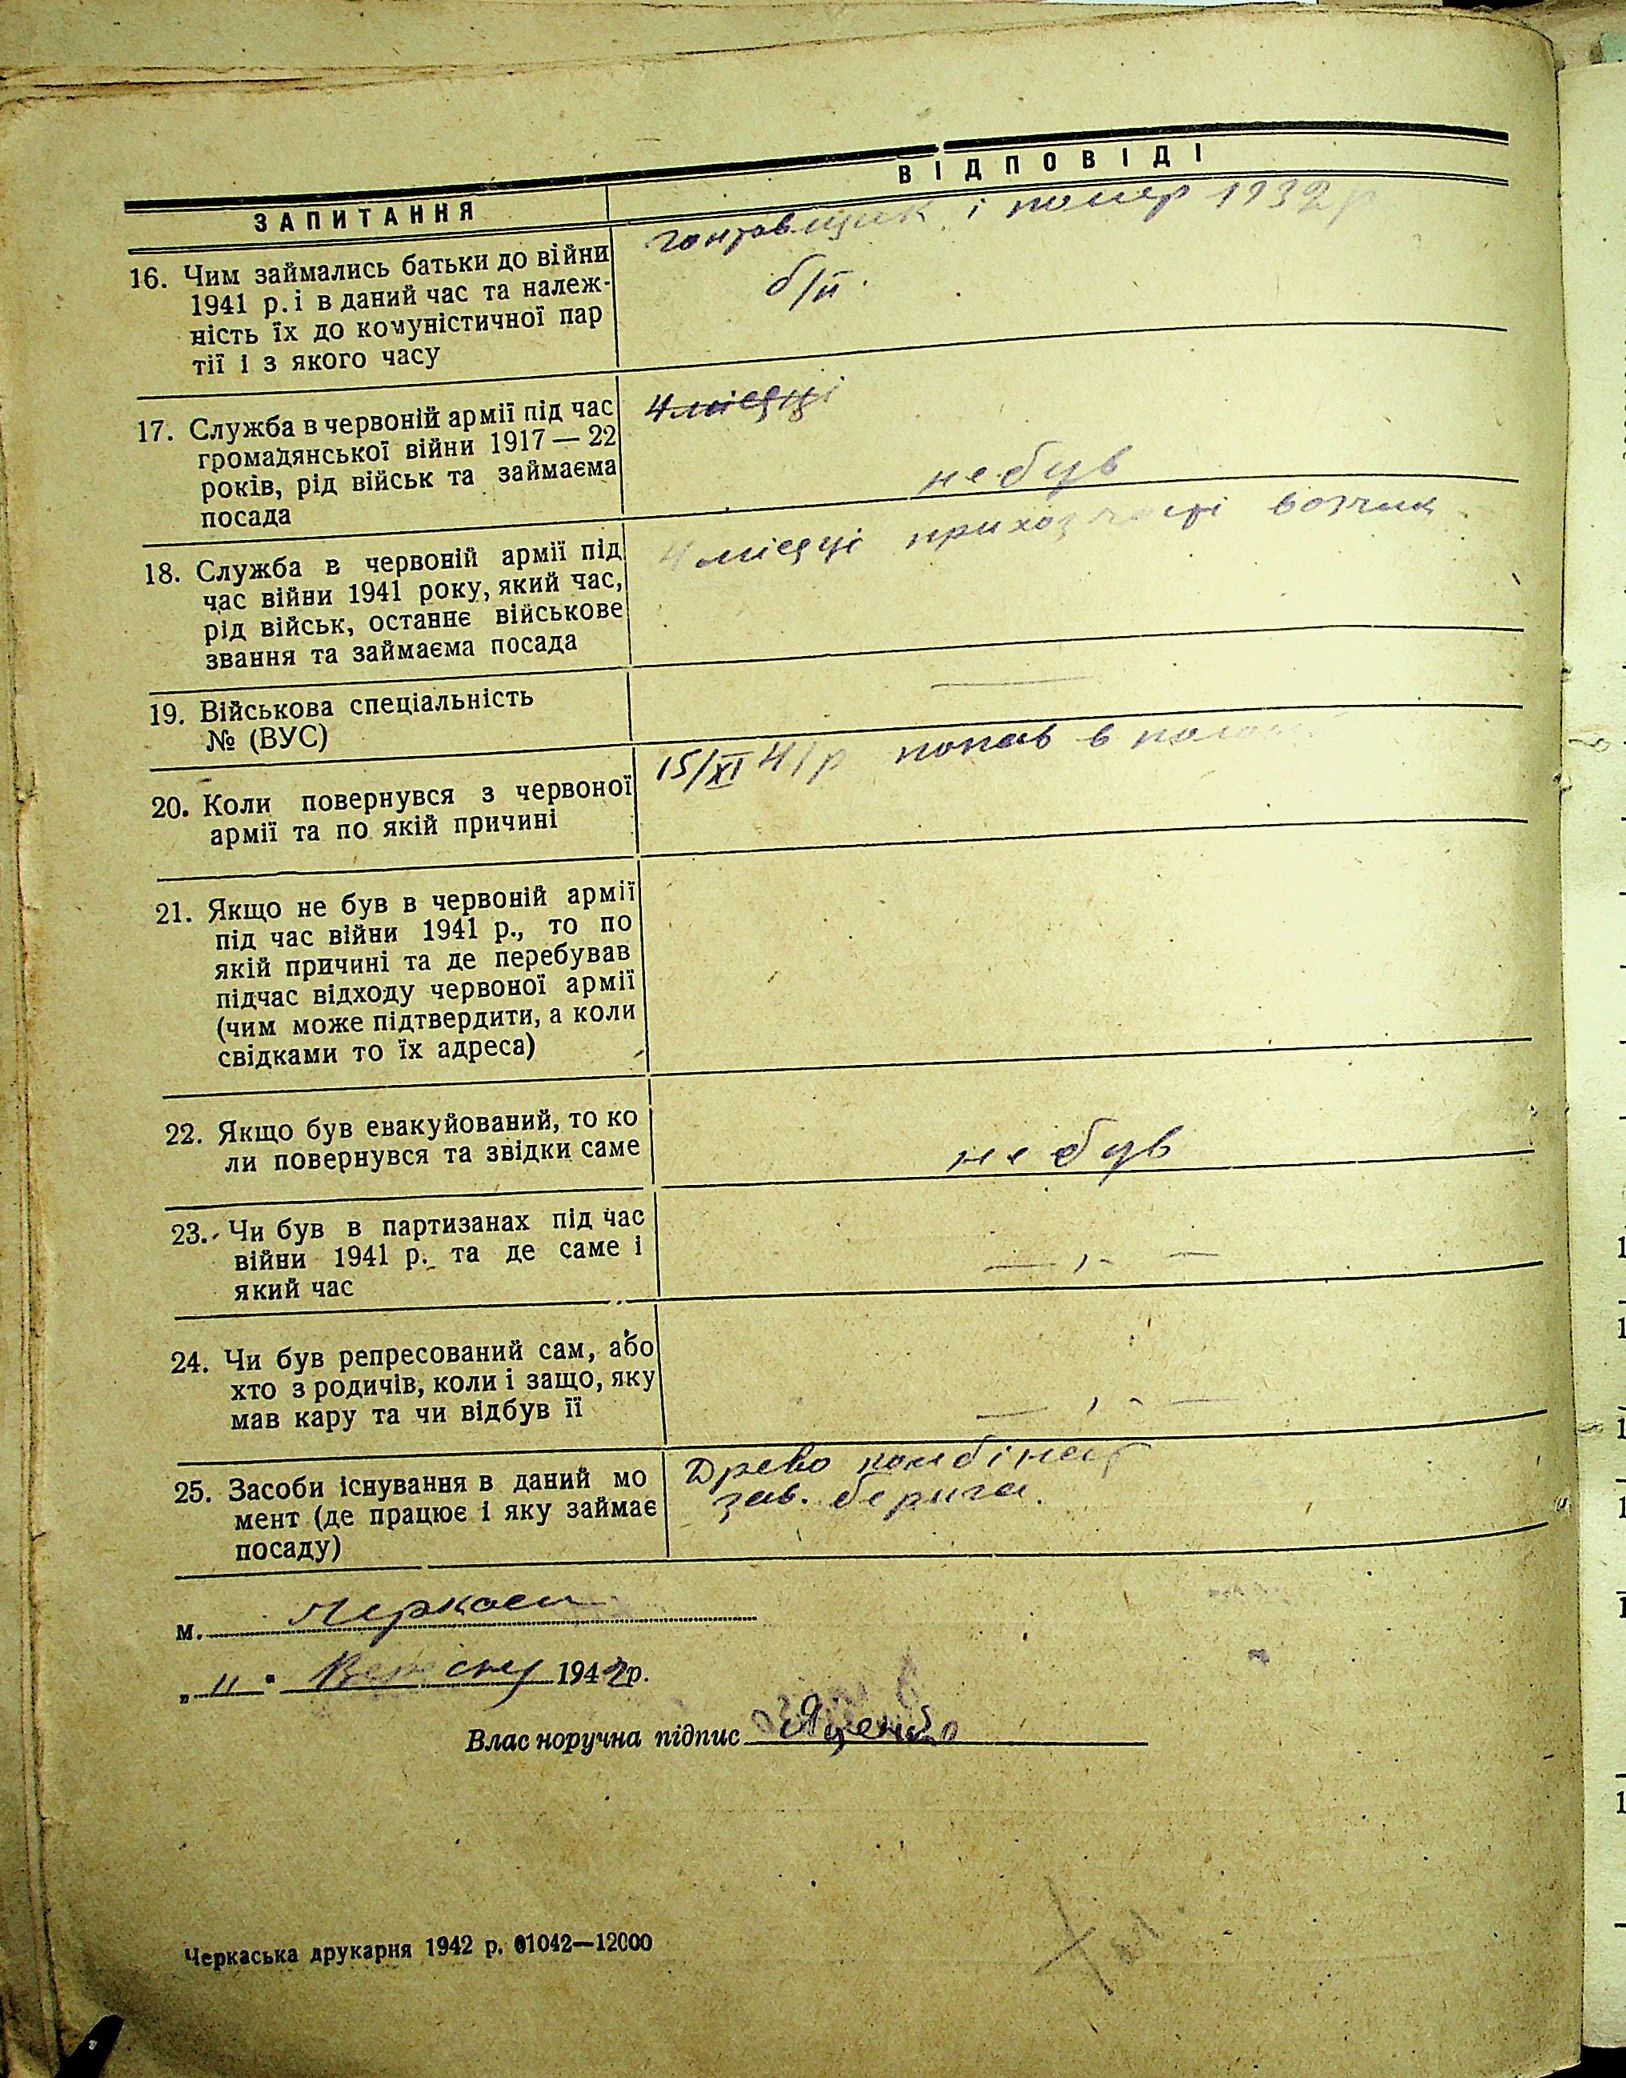 ЗАПИТАННЯ
ВІДПОВІДІ
16. Чим займались батьки до війни
1941 р. і в даний час та належ-
ність їх до комуністичної пар
тії і з якого часу
і помер 1932 р
б/п.
17. Служба в червоній армії під час
громадянської війни 1917 — 22
років, рід військ та займаєма
посада
4 місяці
не був
18. Служба в червоній армії під
час війни 1941 року, який час,
рід військ, останнє військове
звання та займаєма посада
4 місяці
19. Військова спеціальність
№ (ВУС)
20. Коли повернувся з червоної
армії та по якій причині
15/XI 41 р попав в полон
21. Якщо не був в червоній армії
під час війни 1941 р., то по
якій причині та де перебував
підчас відходу червоної армії
(чим може підтвердити, а коли
свідками то їх адреса)
22. Якщо був евакуйований, то ко
ли повернувся та звідки саме
не був
23. Чи був в партизанах під час
війни 1941 р. та де саме і
який час
— „ —
24. Чи був репресований сам, або
хто з родичів, коли і защо, яку
мав кару та чи відбув її
— „ —
25. Засоби існування в даний мо
мент (де працює і яку займає
посаду)
Древо комбінат
зав.
м. Черкаси
„11" Вересня 1942 р.
Влас норучна підпис Яценко
Черкаська друкарня 1942 р. 01042—12000